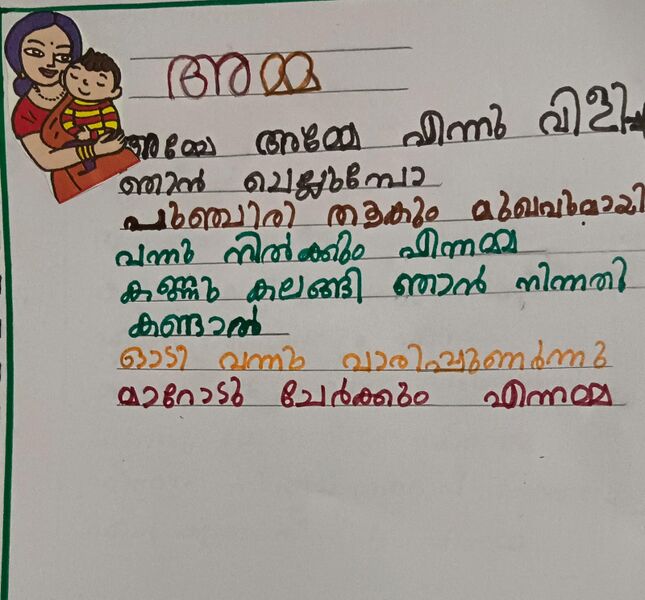 അമ്മ
അമ്മേ അമ്മേ എന്നു വിളിച്ച
ഞാൻ ചെല്ലുമ്പോ
പുഞ്ചിരി തൂകും മുഖവുമായി
വന്നു നിൽക്കും എന്നമ്മ
കണ്ണു കലങ്ങി ഞാൻ നിന്നതി
കണ്ടാൽ
ഓടി വന്നു വാരിപ്പുണർന്നു
മാറോടു ചേർക്കും എന്നമ്മ